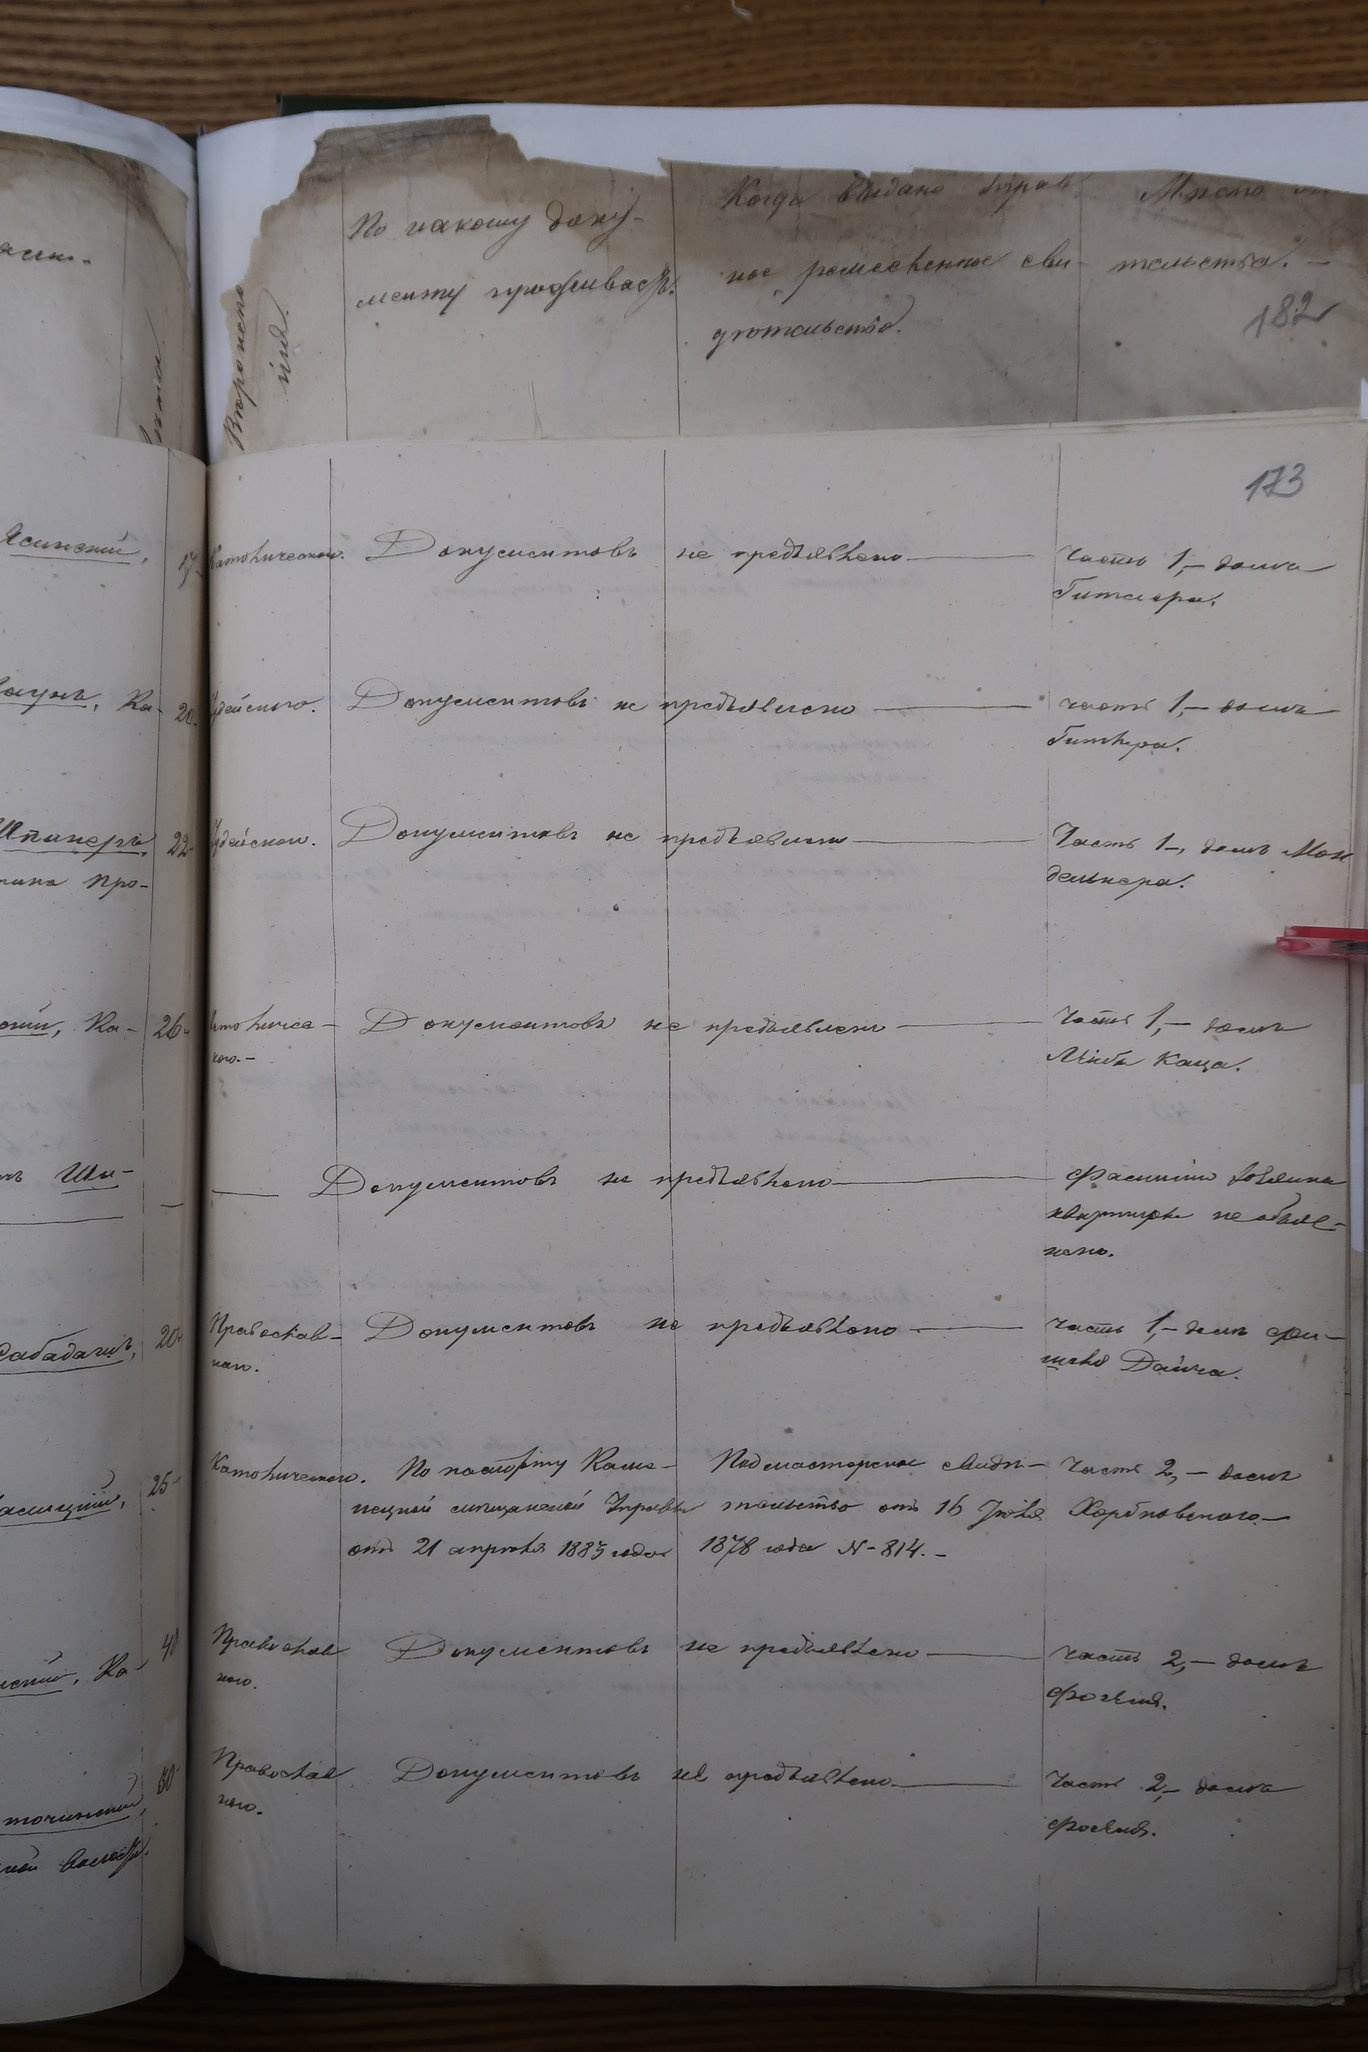 По какому доку-
менту проживаетъ.
Когда выдано Управ
ное ремесленное сви-
дѣтельство.
Место
тельства. —
182
Вѣроисповѣ
нія.
173
Ясинскій,
17
Католическаго.
Документовъ не предъявлено
Часть 1, — домъ
Гитлера.
Ка-
20
Іудейскаго.
Документовъ не предъявлено
часть 1, — домъ
Гитлера.
Шпинеръ,
22
Іудейскаго.
Документовъ не предъявлено
Часть 1 —, домъ Мон
дельнера.
про-
Ка-
26
Католичес-
каго. —
Документовъ не предъявлено
Часть 1, — домъ
Лейба Каца.
Документовъ не предъявлено
Фамиліи хозяина
квартиры не объяв-
лено.
Сабадашъ,
20
Православ-
наго.
Документовъ не предъявлено
Часть 1, — домъ
Дайча.
25
Католическаго.
По паспорту Каме-
нецкой мѣщанской Управы
отъ 21 апрѣля 1883 года
Подмастерское свидѣ-
тельство отъ 16 Іюля
1878 года № 814. —
Часть 2, — домъ
Ка-
40
Православ
наго.
Документовъ не предъявлено
Часть 2, — домъ
50
Православ
наго.
Документовъ не предъявлено
Часть 2, — домъ